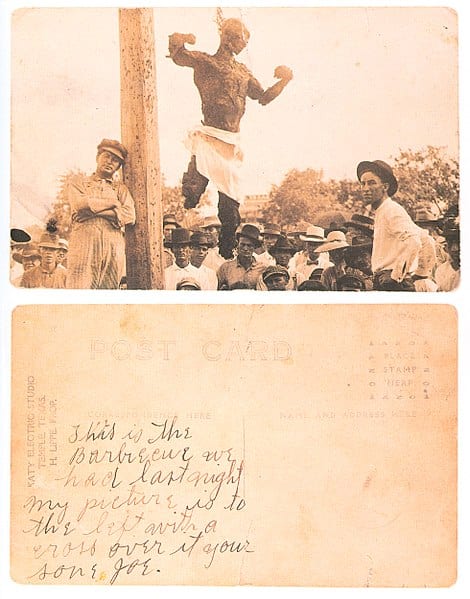 POST CARD
PLACE
STAMP
HERE
CORRESPONDENCE HERE
NAME AND ADDRESS HERE
KATY ELECTRIC STUDIO
TEMPLE TEXAS.
H. LIPPE PROP.
This is the
Barbecue we
had last night
My picture is to
the left with a
cross over it your
sone, Joe.